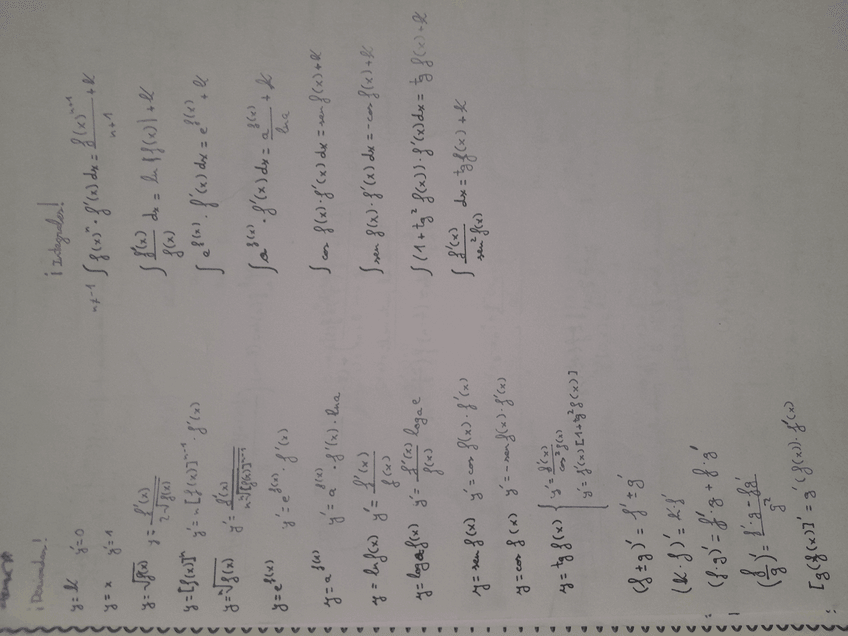 ¡Derivadas!
y = k y' = 0
y = x y' = 1
y = √f(x) y = f'(x) / 2√f(x)
y = [f(x)]ⁿ y' = n[f(x)]ⁿ⁻¹ · f'(x)
y = ⁿ√f(x) y' = f(x) / n ⁿ√[f(x)]ⁿ⁻¹
y = e^f(x) y' = e^f(x) · f'(x)
y = a^f(x) y' = a^f(x) · f'(x) · ln a
y = ln f(x) y' = f'(x) / f(x)
y = logₐ f(x) y' = f'(x) / f(x) logₐ e
y = sen f(x) y' = cos f(x) · f'(x)
y = cos f(x) y' = -sen f(x) · f'(x)
y = tg f(x) { y' = f'(x) / cos² f(x)
y' = f'(x) [1 + tg² f(x)]
(f ± g)' = f' ± g'
(k · f)' = k · f'
(f · g)' = f' · g + f · g'
(f / g)' = f' · g - f g' / g²
[g(f(x))]' = g'(f(x)) · f'(x)
¡Integrales!
n ≠ -1 ∫ f(x)ⁿ · f'(x) dx = f(x)ⁿ⁺¹ / n+1 + k
∫ f'(x) / f(x) dx = ln |f(x)| + k
∫ a^f(x) · f'(x) dx = e^f(x) + k
∫ a^f(x) · f'(x) dx = a^f(x) / ln a + k
∫ cos f(x) · f'(x) dx = sen f(x) + k
∫ sen f(x) · f'(x) dx = -cos f(x) + k
∫ (1 + tg² f(x)) · f'(x) dx = tg f(x) + k
∫ f'(x) / sen² f(x) dx = tg f(x) + k